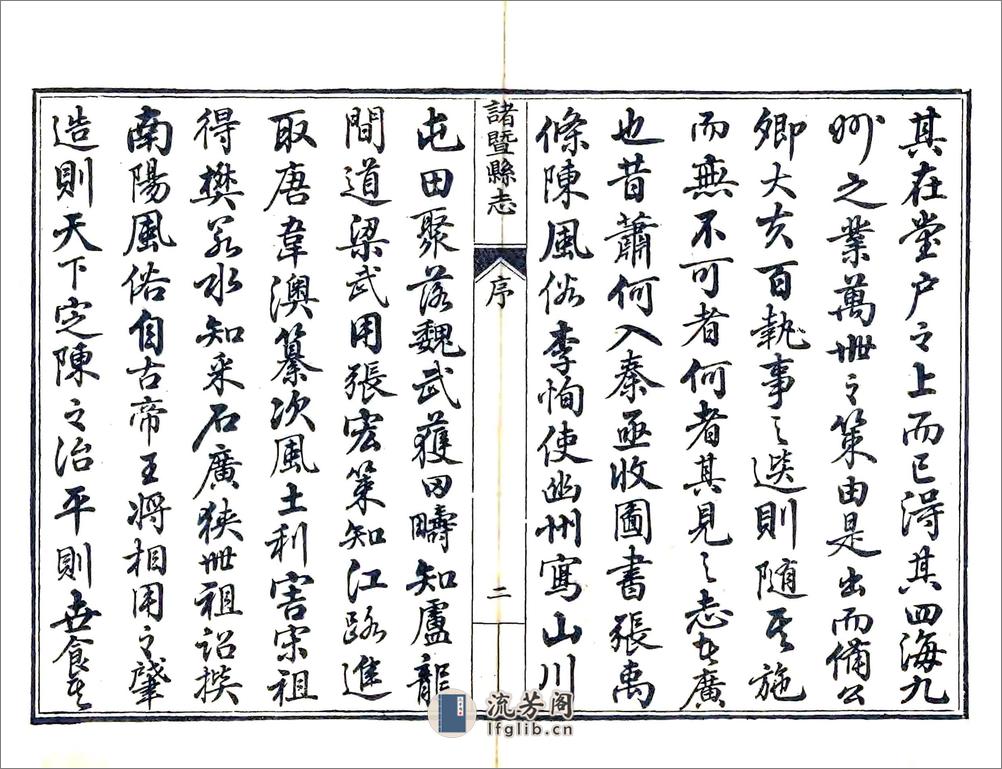 其在堂户之上而已得其四海九
州之業萬世之策由是出而備公
卿大夫百執事之選則随其施
而無不可者何者其見之志者廣
也昔蕭何入秦亟收圖書張禹
條陳風俗李恂使幽州寫山川
諸暨縣志
序
二
屯田聚落魏武獲田疇知盧龍
間道梁武用張宏策知江路進
取唐韋澳纂次風土利害宋祖
得樊若水知采石廣狹世祖詔撰
南陽風俗自古帝王將相用之肇
造則天下定陳之治平則世食其
流芳阁
lfglib.cn